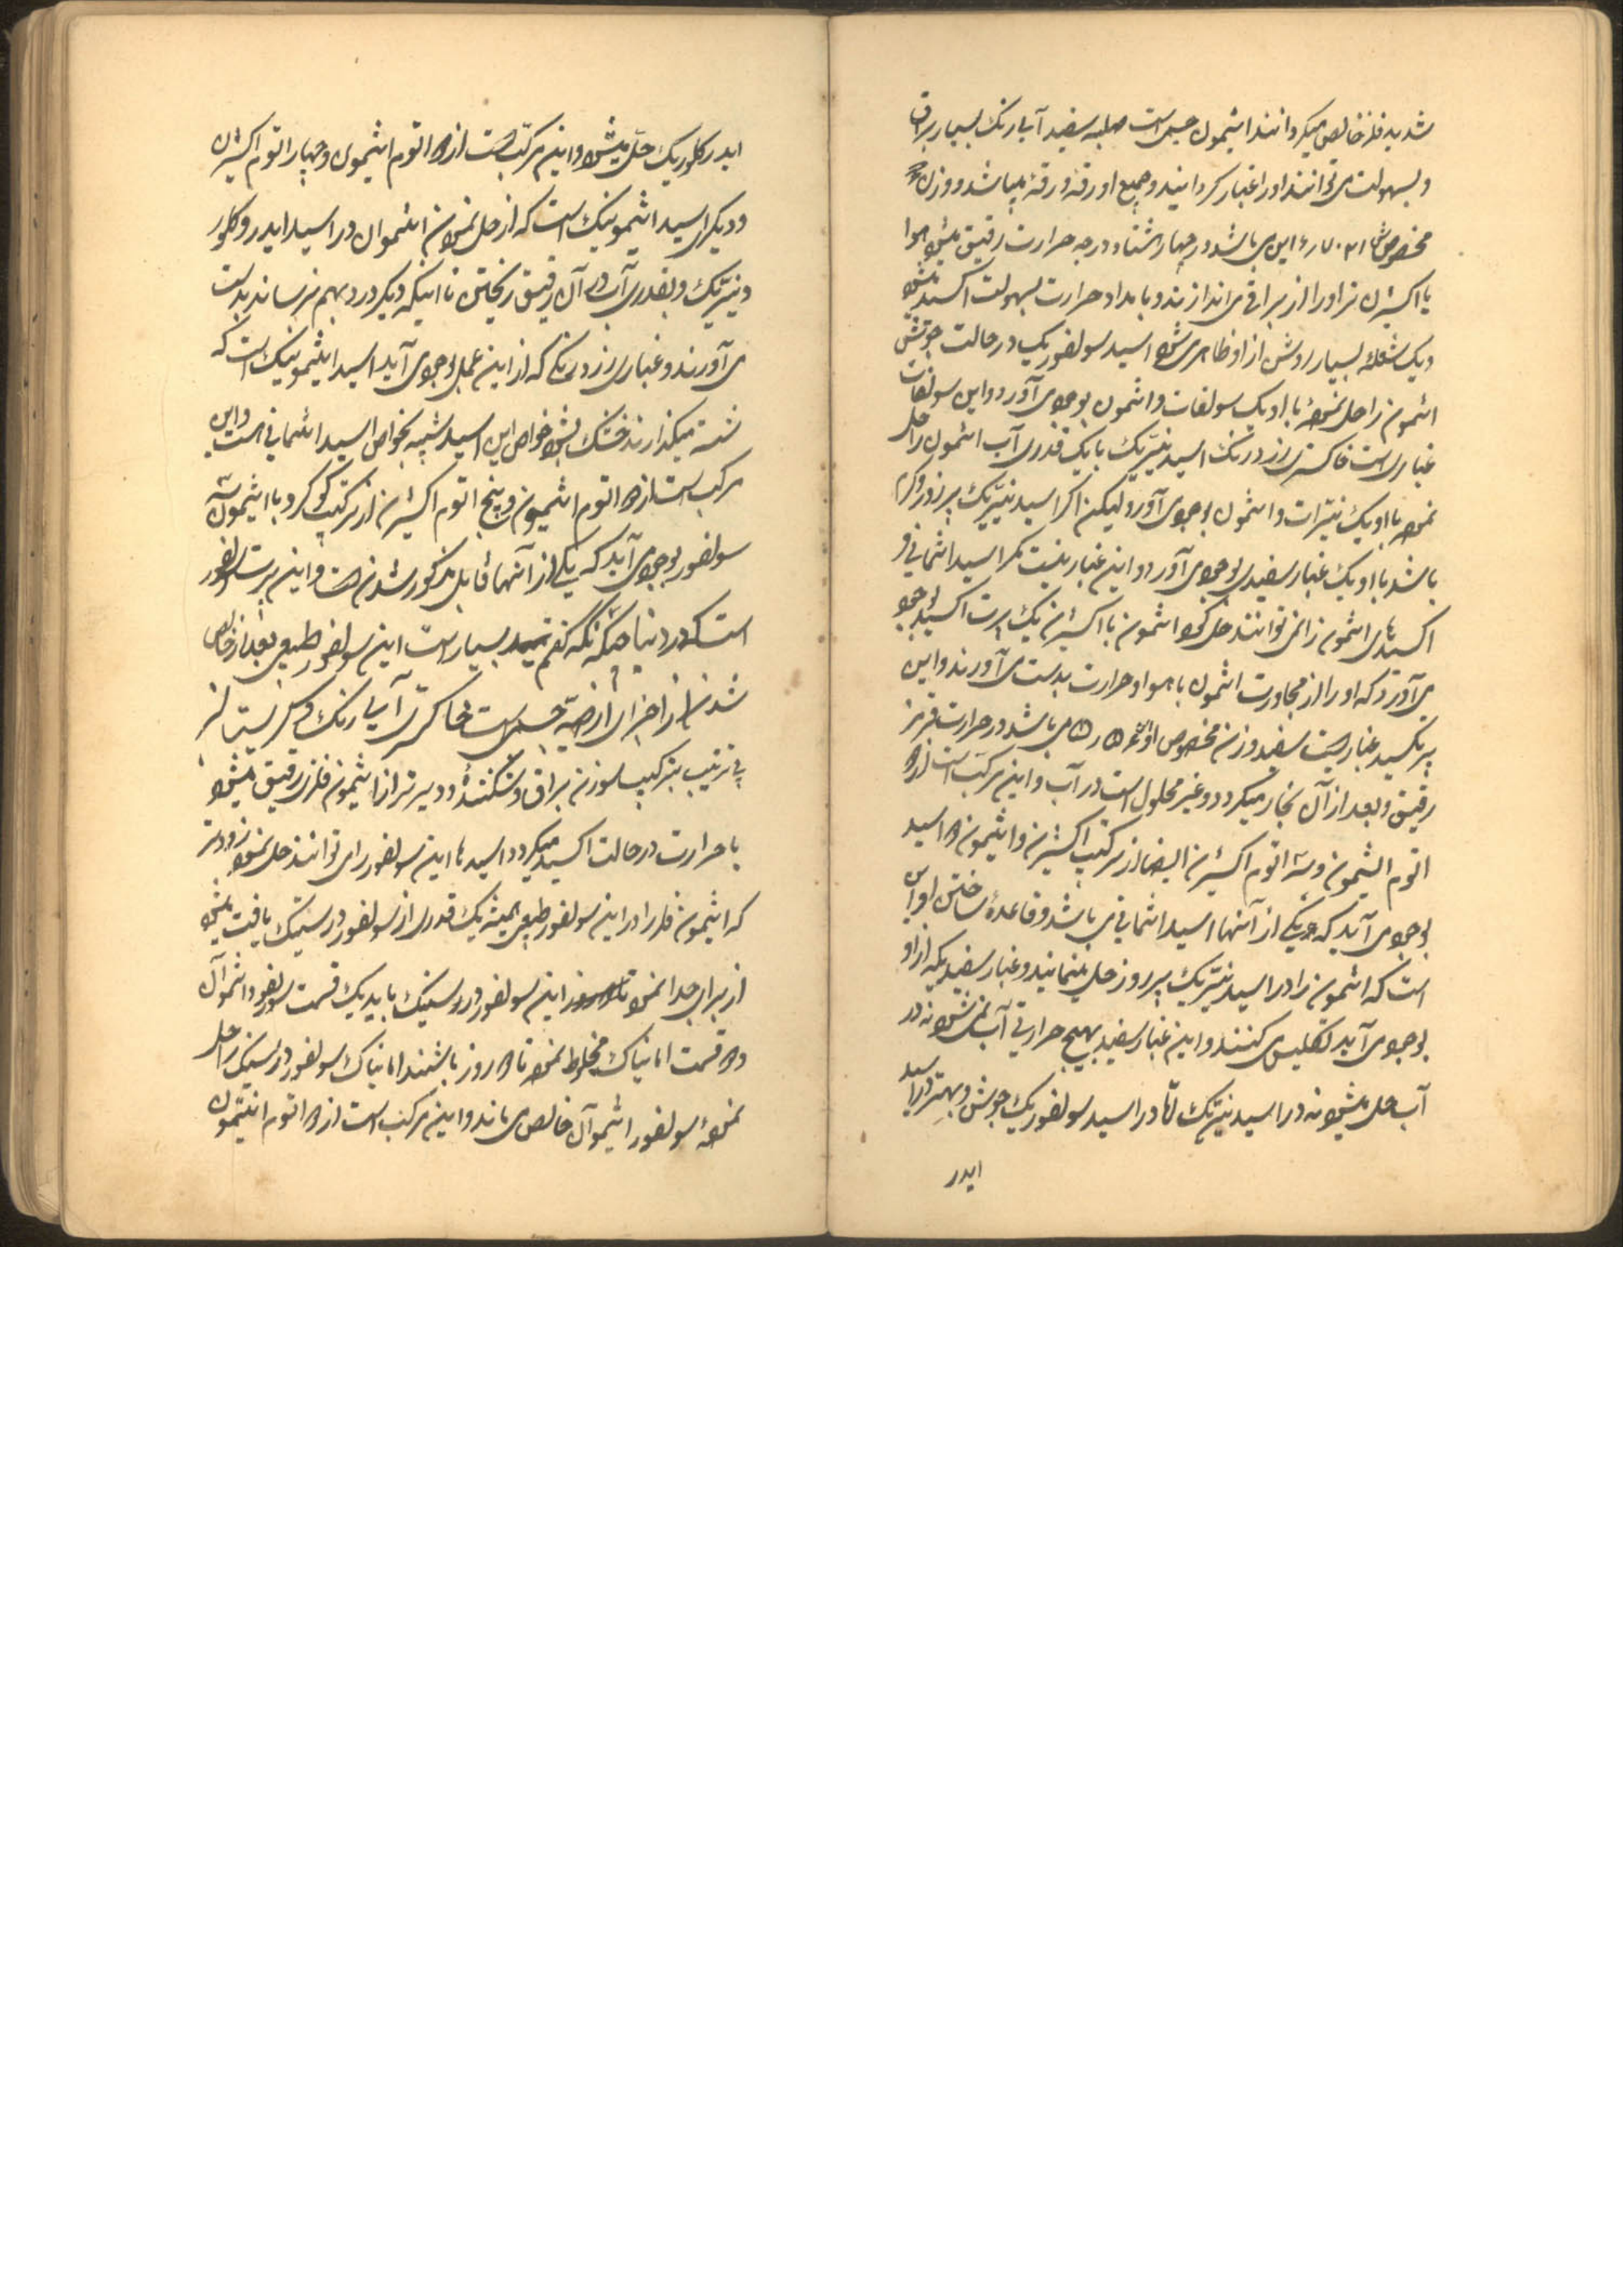 شدید فلز خالص میکردانند انتیمون جسمی است صلبه سفید آبی رنک بسیار براق
و بسهولت می توانند او را غبار کردانید و جمیع او رقه ورقه میباشد و وزن
مخصوص می باشد در چهار صد هشتاد درجه حرارت رقیق میشود هوا
یا اکسیژن تر او را از براقی می اندازند و بامداد حرارت بسهولت اکسید میشود
و یک شعله بسیار روشن از او ظاهر می شود اسید سولفوریک در حالت جوشش
انتمون را حل نموده با او یک سولفات دانتمون بوجود می آورد و این سولفات
غباری است خاکستری زرد رنک اسید نیتریک با یک قدری آب انتمون را حل
نموده با او یک نیترات دانتمون بوجود می آورد ولیکن اکر اسید نیتریک پر زور و کرم
باشد با او یک غبار سفیدی بوجود می آورد و این غبار نیست مکر اسید انتمانی و
اکسیدهای انتمون را نمی توانند حل کرد انتمون با اکسیژن یک پرت اکسید بوجود
می آورد که او را از مجاورت انتمون با هوا و حرارت بدست می آورند و این
پرتکسید غباریست سفید وزن مخصوص او می باشد در حرارت قرمز
رقیق و بعد از آن بخار میکردد و غیر محلول است در آب و این مرکب است از دو
اتوم انتیمون و سه اتوم اکسیژن ایضا از ترکیب اکسیژن و انتیمون دو اسید
بوجود می آید که یکی از آنها اسید انتمانی می باشد و قاعده ساختن او این
است که انتمون را در اسید نیتریک پر زور حل مینمایند و غبار سفیدیکه از او
بوجود می آید تکلیس می کنند و این غبار سفید بهیچ حرارتی آب نمی شود نه در
آب حل میشود نه در اسید نیتریک اما در اسید سولفوریک جوش و بهتر در اسید
ایدر
ایدر کلوریک حل میشود و این مرکب است از دو اتوم انتیمون و چهار اتوم اکسیژن
و دیکر اسید انتیمونیک است که از حل نمودن انتیموان در اسید ایدرو کلور
و نیتریک و بقدری آب در آن رقیق ریختن تا اینکه دیکر درد بهم نرساند بدست
می آورند و غباری زرد رنکی که از این عمل بوجود می آید اسید انتیمونیک است که
شسته میکذارند خشک بشود خواص این اسید شبیه بخواص اسید انتمانی است و این
مرکب است از دو اتوم انتیمون و پنج اتوم اکسیژن از ترکیب کوکرد با انتیمون سه
سولفور بوجود می آید که یکی از آنها قابل مذکور شدن است و این پرت سولفور
است که در دنیا همچنانکه کفتم بسیار است این سولفور طبیعی بعد از خالص
شدن از اجزای ارضیه جسمی است خاکستری آبی رنک کریستالیز
بی ترتیب بترکیب سوزن براق و شکننده و دیرتر از انتیمون فلزی رقیق میشود
با حرارت در حالت اکسید میکردد اسیدها این سولفور را می توانند حل نمود زودتر
که انتیمون فلز را در این سولفور طبیعی همیشه یک قدری از سولفور درسنیک یافت میشود
از برای جدا نمودن این سولفور درسنیک باید یک قسمت سولفور دانتموآن
دو قسمت امانیاک مخلوط نموده تا دو روز باشند امانیاک سولفور درسنیک را حل
نموده سولفور انتیموآن خالص می ماند و این مرکب است از دو اتوم انتیمون